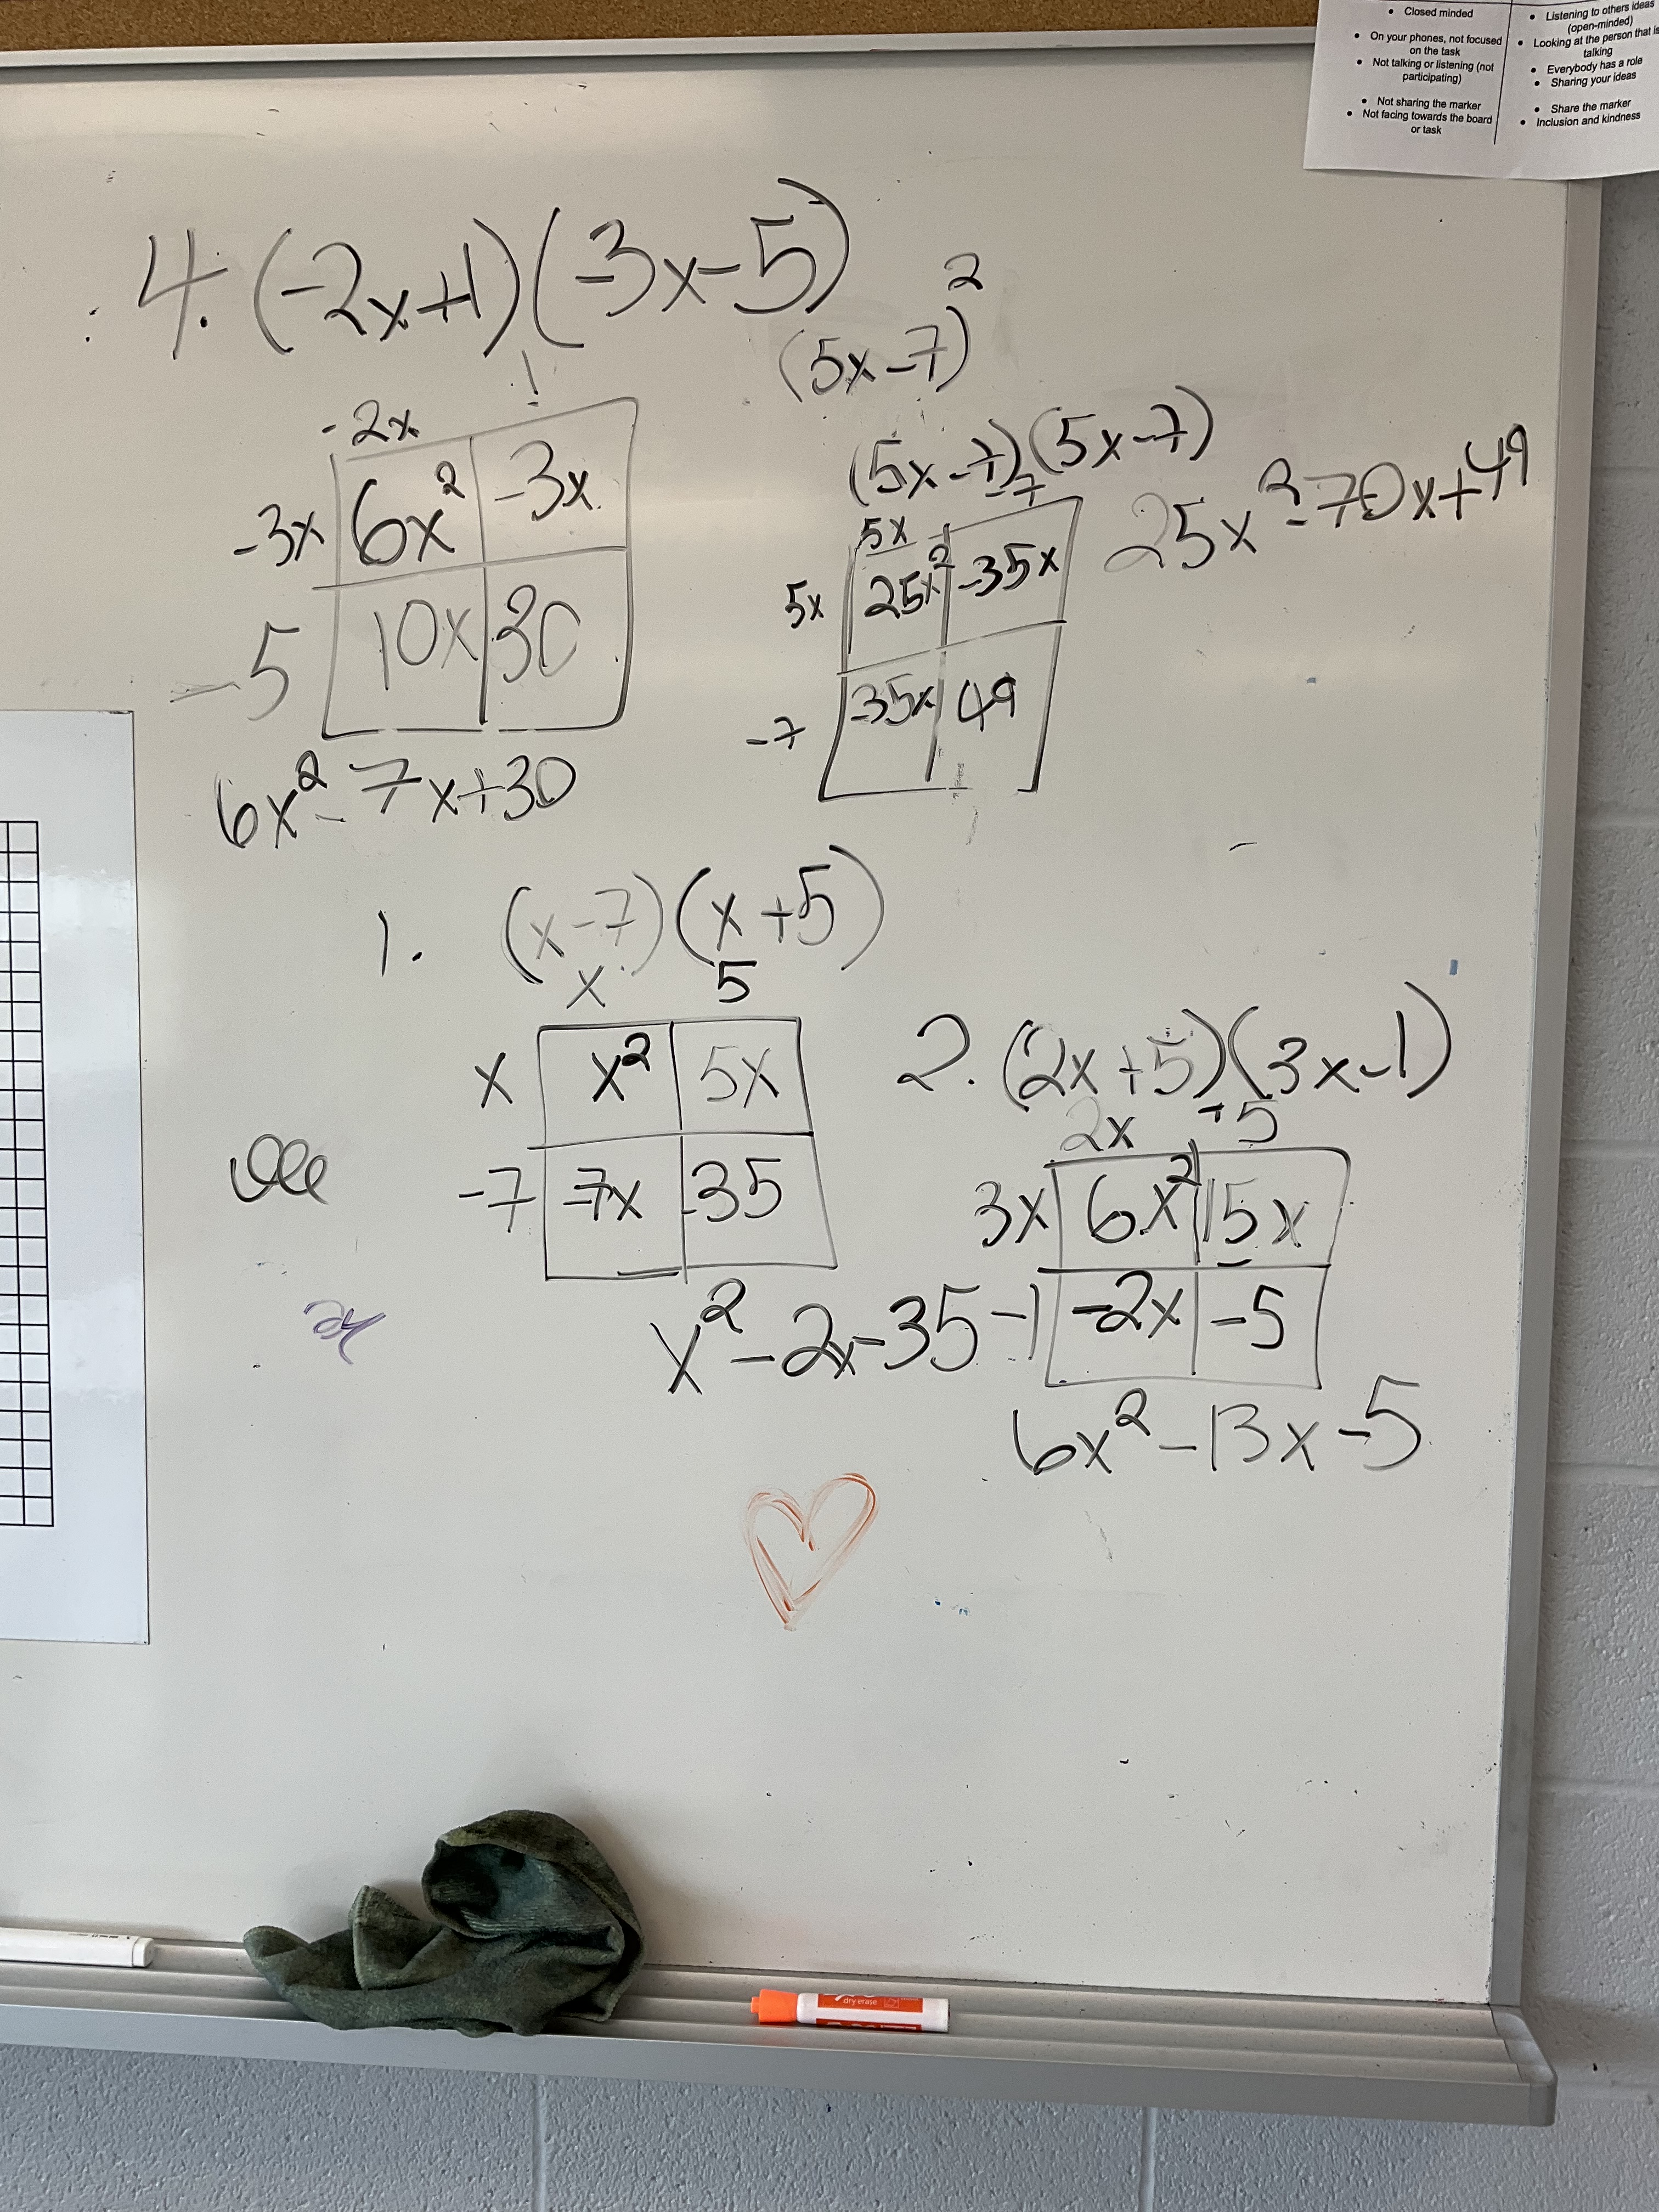 Closed minded
On your phones, not focused
on the task
Not talking or listening (not
participating)
Not sharing the marker
Not facing towards the board
or task
Listening to others ideas
(open-minded)
Looking at the person that is
talking
Everybody has a role
Sharing your ideas
Share the marker
Inclusion and kindness
4. (-2x+1)(-3x-5)
-2x 1
-3x 6x² -3x
-5 10x 30
6x² - 7x+30
(5x-7)²
(5x-7)(5x-7)
5x -7
5x 25x² -35x
-7 -35x 49
25x²-70x+49
1. (x-7)(x+5)
x 5
x x² 5x
-7 -7x -35
x² - 2x-35
2. (2x+5)(3x-1)
2x +5
3x 6x² 15x
-1 -2x -5
6x² - 13x - 5
dry erase